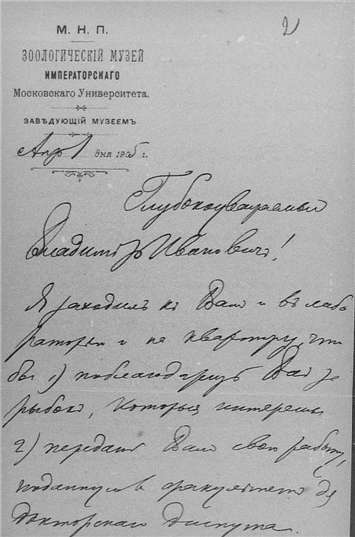 2
М. Н. П.
ЗООЛОГИЧЕСКІЙ МУЗЕЙ
ИМПЕРАТОРСКАГО
Московскаго Университета.
ЗАВѢДУЮЩІЙ МУЗЕЕМЪ
Апр 1 дня 1905 г.
Глубокоуважаемый
Владиміръ Ивановичъ!
Я заходилъ къ Вамъ и въ лабо
раторію и на квартиру, что
бы 1) поблагодарить Васъ за
рыбокъ, которыя интересны
2) передать Вамъ свою работу,
поданную въ факультетъ для
докторскаго диспута.